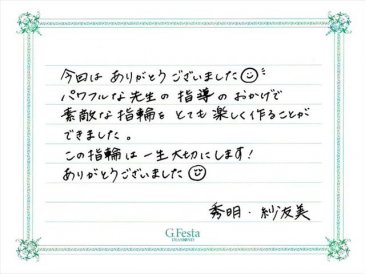 今回は ありがとうございました☺
パワフルな先生の 指導の おかげで
素敵な指輪を とても 楽しく作ることが
できました。
この指輪は 一生大切にします!
ありがとうございました☺
秀明・紗友美
G.Festa
DIAMOND